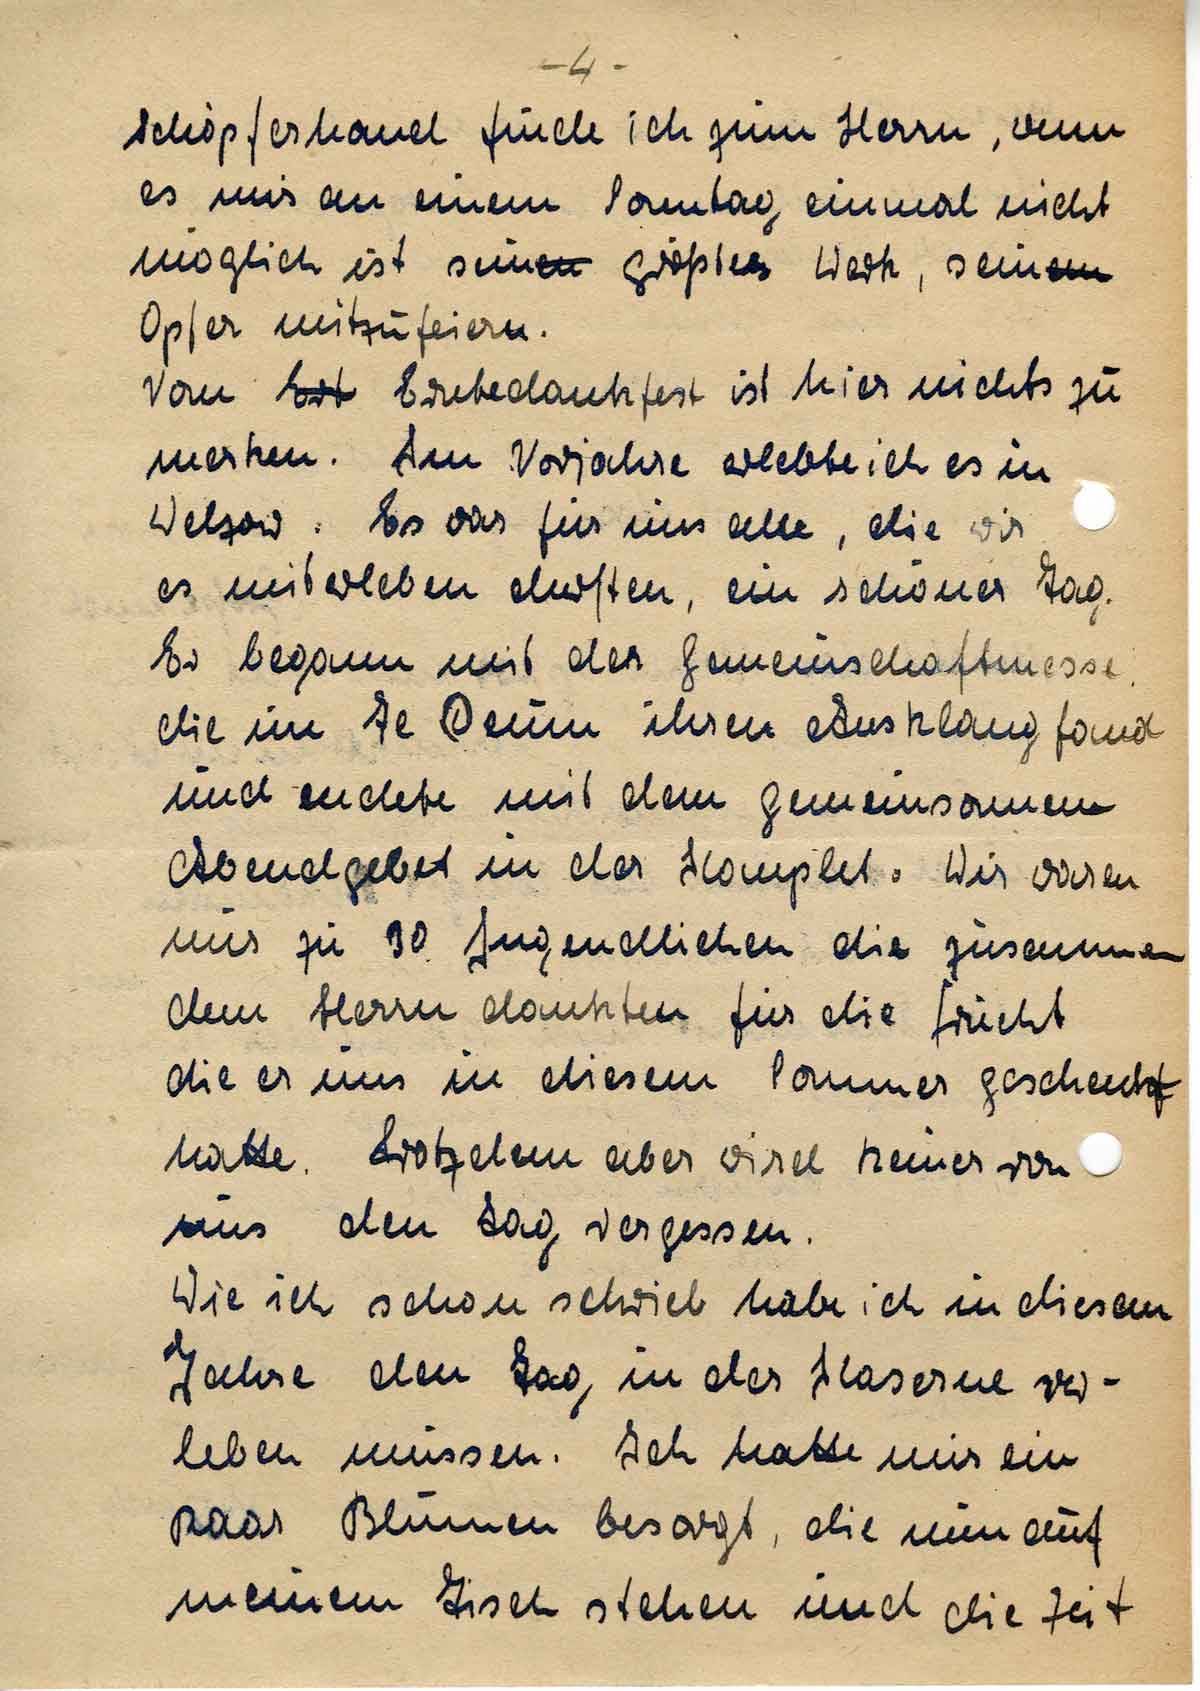 -4-
Schöpferhand finde ich zum Herrn, wenn
es mir an einem Sonntag einmal nicht
möglich ist sein größtes Werk, sein
Opfer mitzufeiern.
Vom Ert Erntedankfest ist hier nichts zu
merken. Im Vorjahre erlebte ich es in
Welzow. Es war für uns alle, die wir
es miterleben durften, ein schöner Tag.
Er begann mit der Gemeinschaftmesse,
die im Te Deum ihren Ausklang fand
und endete mit dem gemeinsamen
Abendgebet in der Komplet. Wir waren
nur zu 30 Jugendlichen die zusammen
dem Herrn dankten für die Frucht
die er uns in diesem Sommer geschenkt
hatte. Trotzdem aber wird keiner von
uns den Tag vergessen.
Wie ich schon schrieb habe ich in diesem
Jahre den Tag in der Kaserne ver-
leben müssen. Ich hatte mir ein
paar Blumen besorgt, die nun auf
meinem Tisch stehen und die Zeit